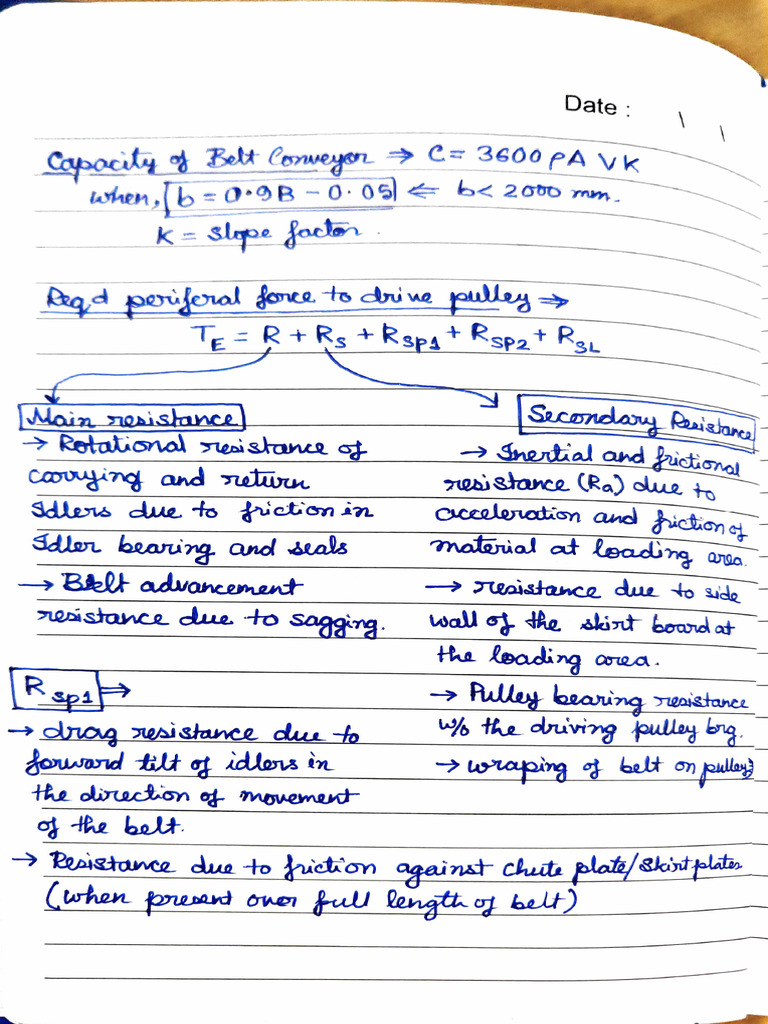 Date : \ \
Capacity of Belt Conveyor → C = 3600 ρA V K
when, [b = 0.9B - 0.05] ⇐ b < 2000 mm.
K = slope factor.
Req d periferal force to drive pulley ⇒
T_E = R + R_S + R_SP1 + R_SP2 + R_SL
Main resistance
→ Rotational resistance of
carrying and return
Idlers due to friction in
Idler bearing and seals
→ Belt advancement
resistance due to sagging.
Secondary Resistance
→ Inertial and frictional
resistance (Ra) due to
acceleration and friction of
material at loading area.
→ resistance due to side
wall of the skirt board at
the loading area.
→ Pulley bearing resistance
w/o the driving pulley brg.
→ wraping of belt on pulleys
R_SP1 ⇒
→ drag resistance due to
forward tilt of idlers in
the direction of movement
of the belt.
→ Resistance due to friction against chute plate/skirt plates
(when present over full length of belt)